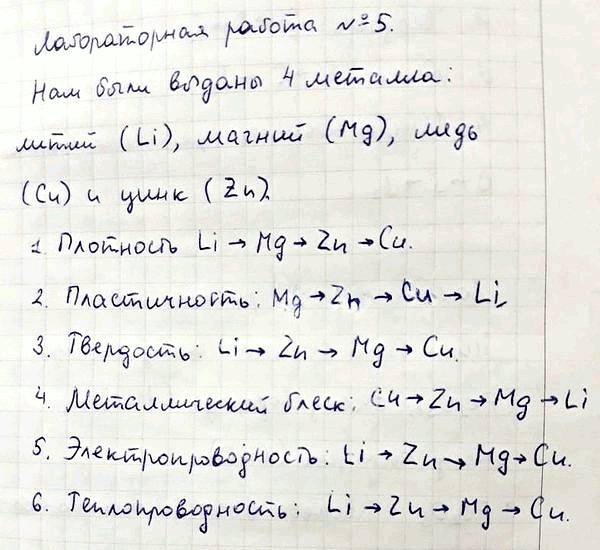 Лабораторная работа №5.
Нам были выданы 4 металла:
литий (Li), магний (Mg), медь
(Cu) и цинк (Zn).
1. Плотность Li → Mg → Zn → Cu.
2. Пластичность: Mg → Zn → Cu → Li
3. Твердость: Li → Zn → Mg → Cu.
4. Металлический блеск: Cu → Zn → Mg → Li
5. Электропроводность: Li → Zn → Mg → Cu.
6. Теплопроводность: Li → Zn → Mg → Cu.